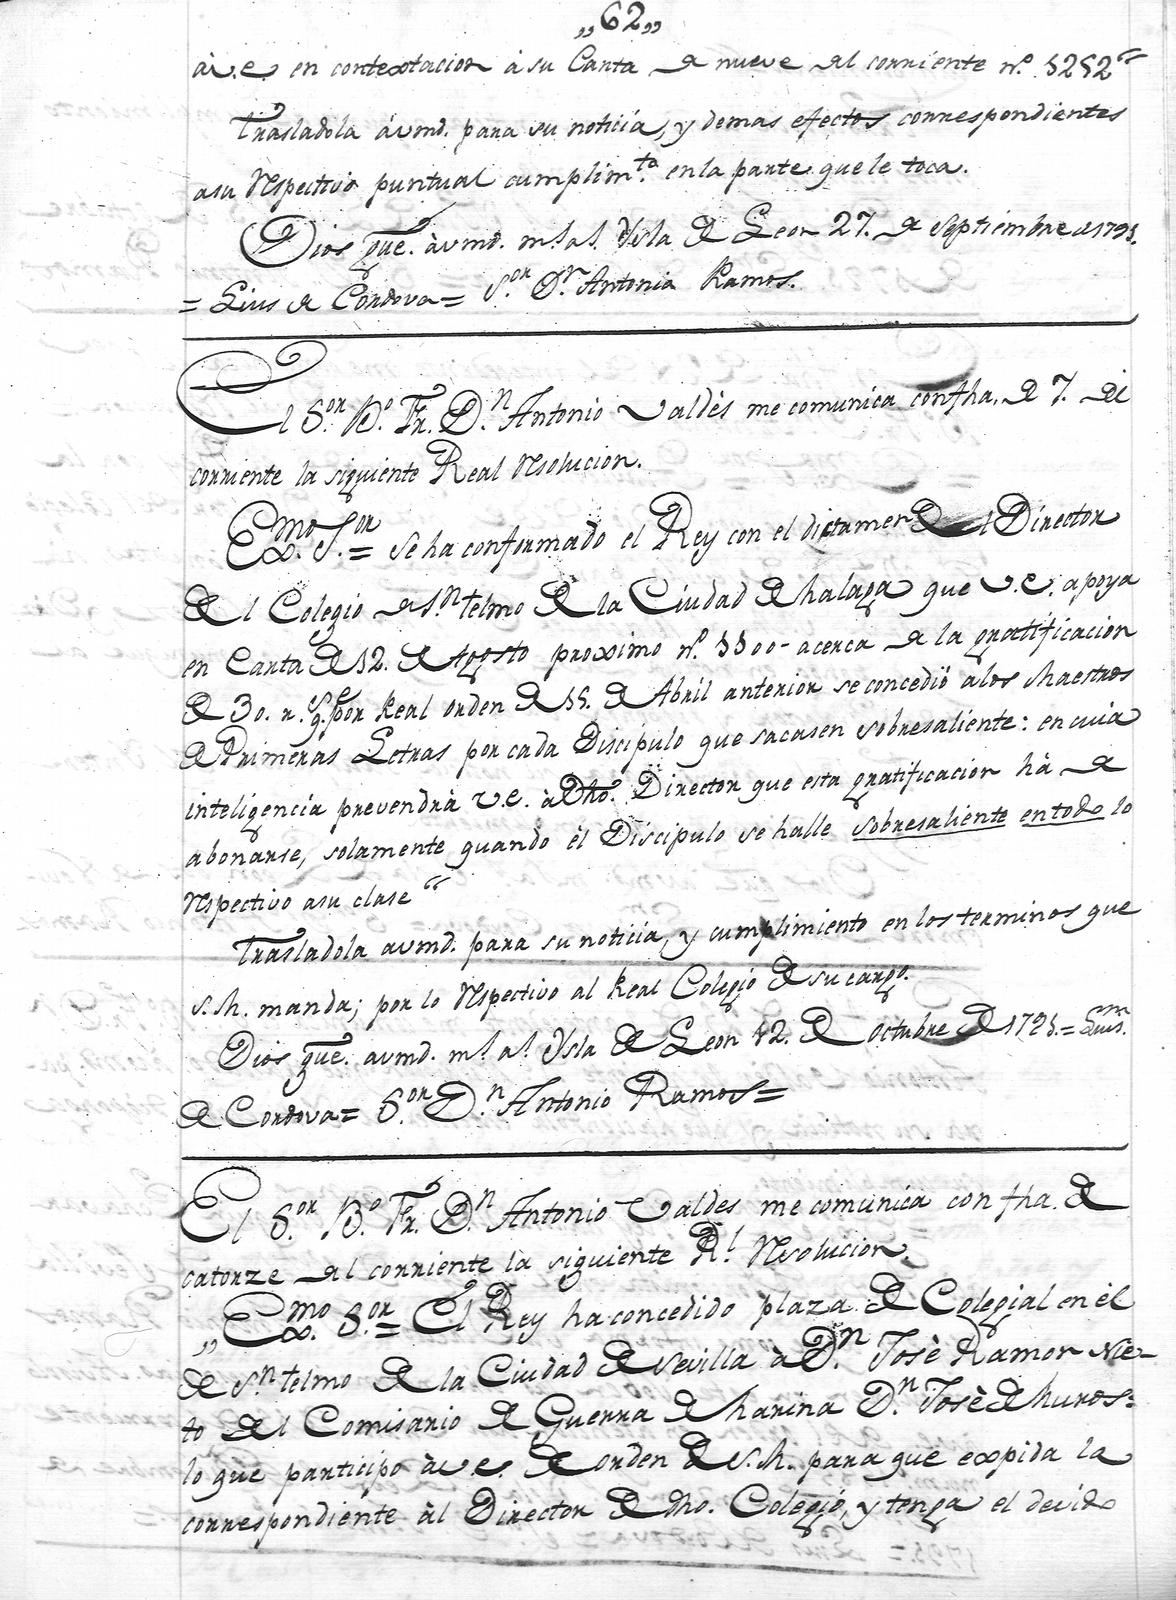 „62„
à v.e. en contextacion à su Carta de nueve del corriente nº. 5252“
Trasladola à vmd. para su noticia, y demas efectos correspondientes
asu respectivo puntual cumplim.to en la parte que le toca.
Dios gue. à vmd. ms. as. Ysla de Leon 27. de Septiembre de 1791.
= Luis de Cordova = S.or Dn. Antonio Ramos.
El S.or B.o Fr. D.n Antonio Valdès me comunica con fha. de 7. del
corriente la siguiente Real resolucion.
Ex.mo S.or = Se ha conformado el Rey con el dictamen del Director
del Colegio de S.n telmo de la Ciudad de Malaga que v.e. apoya
en Carta de 12. de Agosto proximo nº. 5500 - acerca de la gratificacion
de 30. r. q.e por Real orden de 15. de Abril anterior se concediò alos Maestros
de Primeras Letras por cada Discipulo que sacasen sobresaliente: en cuia
inteligencia prevendrà v.e. à Dho. Director que esta gratificacion hà de
abonarse, solamente quando èl Discipulo se halle sobresaliente en todo lo
respectivo asu clase“
Trasladola avmd. para su noticia, y cumplimiento en los terminos que
S.M. manda; por lo respectivo al Real Colegio de su cargo.
Dios gue. avmd. ms. as. Ysla de Leon 12. de Octubre de 1791. = Luis.
de Cordova = S.or D.n Antonio Ramos =
El S.or B.o Fr. D.n Antonio Valdes me comunica con fha. de
catorze del corriente la siguiente R.l resolucion.
„Ex.mo S.or = El Rey ha concedido plaza de Colegial en èl
de S.n telmo de la Ciudad de Sevilla à D.n Josè Ramon Nie-
to del Comisario de Guerra de Marina D.n Josè de Muros:
lo que participo à v.e. de orden de S.M. para que expida la
correspondiente àl Director de dho. Colegio, y tenga el devido